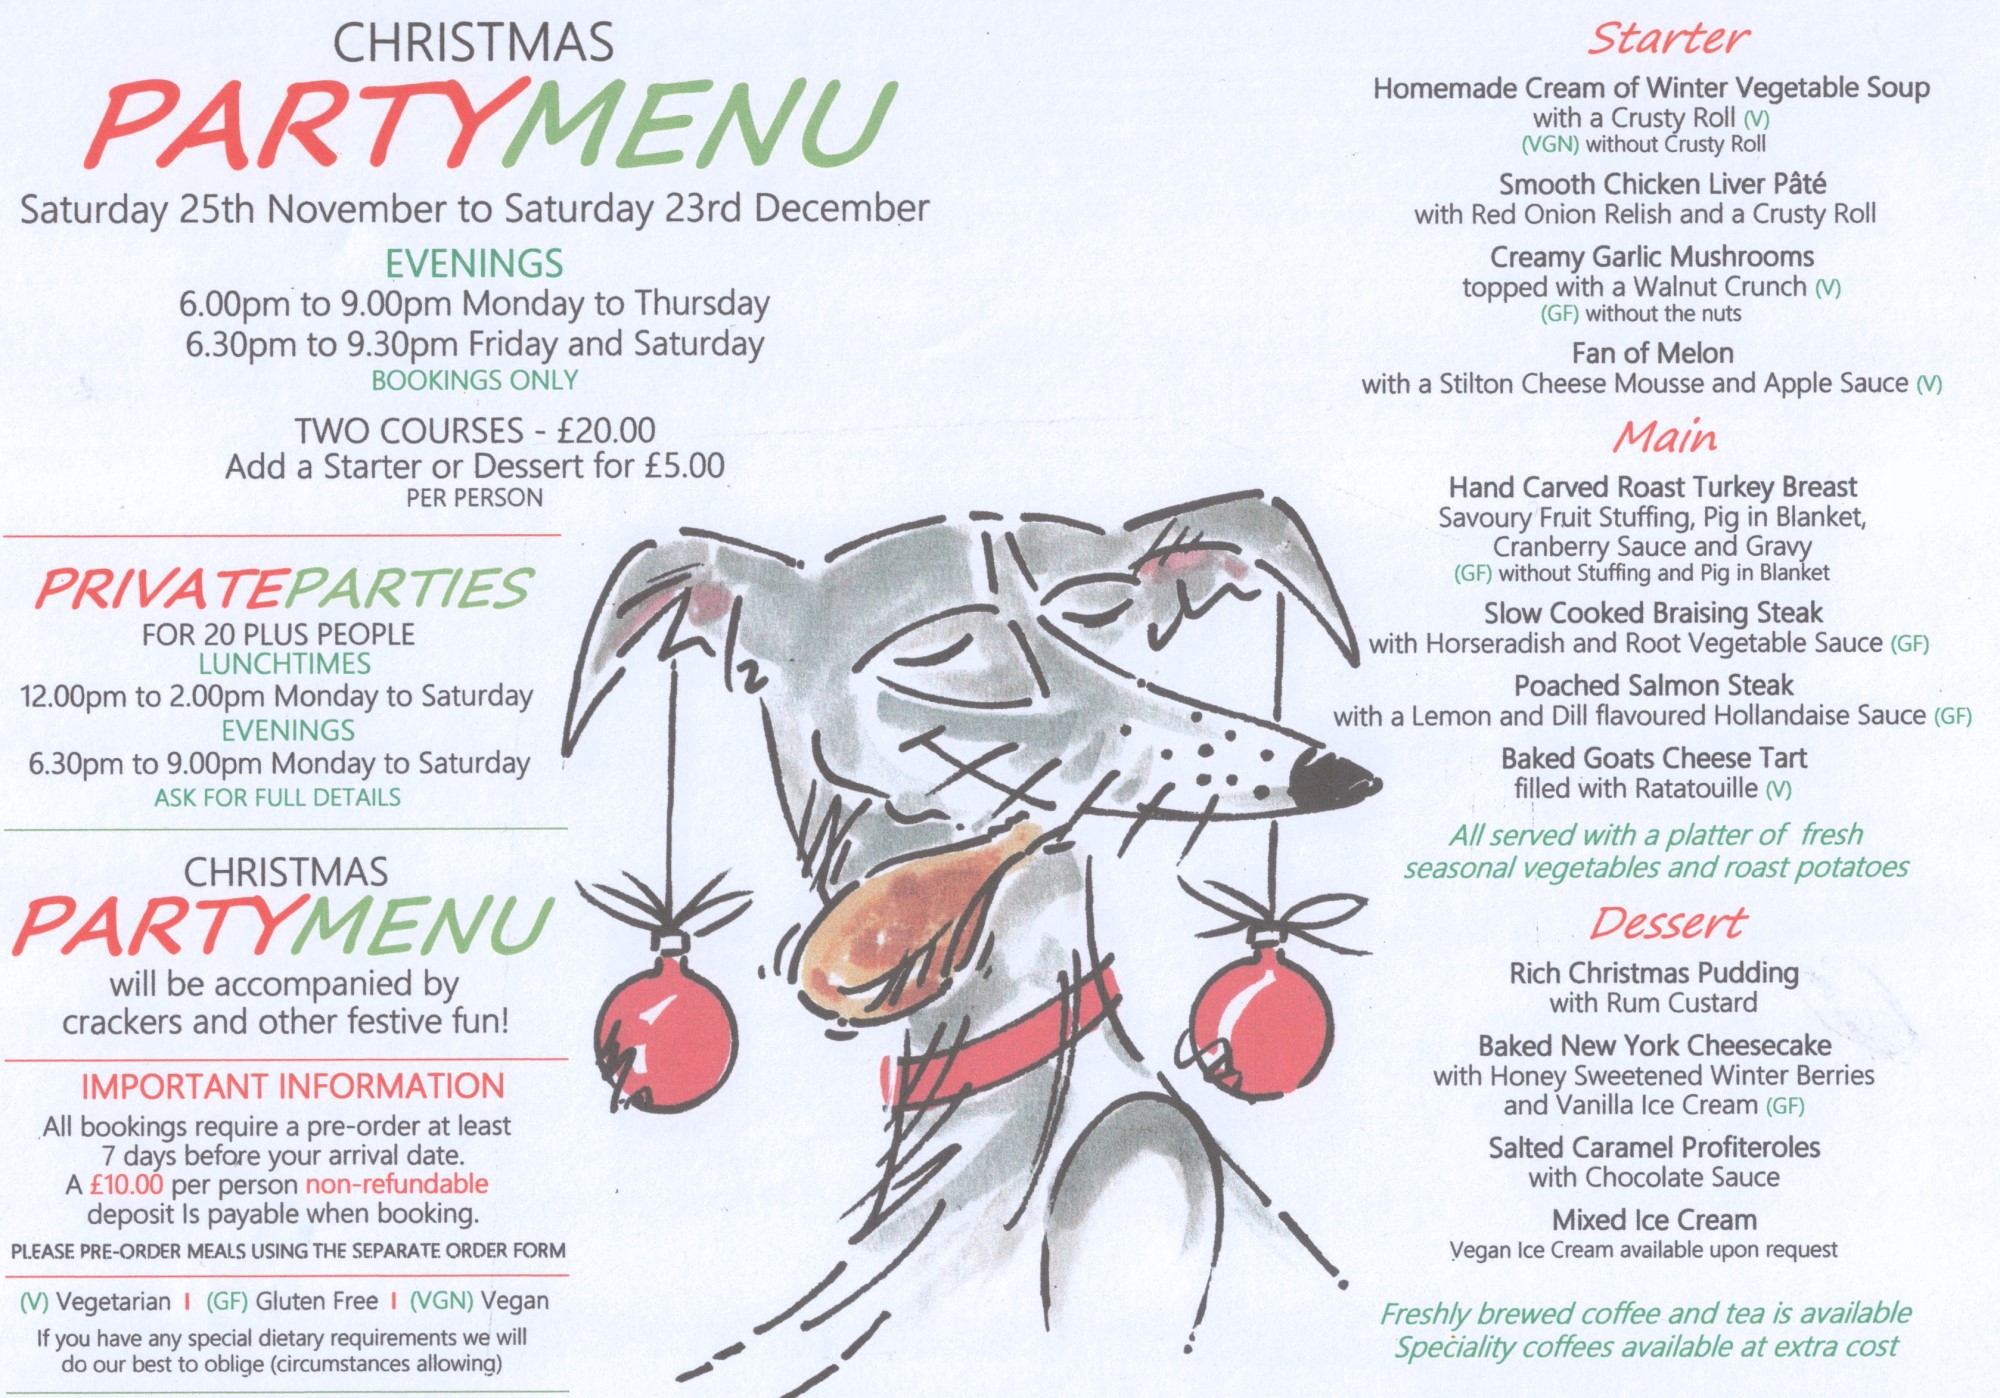 CHRISTMAS
PARTYMENU
Saturday 25th November to Saturday 23rd December
EVENINGS
6.00pm to 9.00pm Monday to Thursday
6.30pm to 9.30pm Friday and Saturday
BOOKINGS ONLY
TWO COURSES - £20.00
Add a Starter or Dessert for £5.00
PER PERSON
PRIVATEPARTIES
FOR 20 PLUS PEOPLE
LUNCHTIMES
12.00pm to 2.00pm Monday to Saturday
EVENINGS
6.30pm to 9.00pm Monday to Saturday
ASK FOR FULL DETAILS
CHRISTMAS
PARTYMENU
will be accompanied by
crackers and other festive fun!
IMPORTANT INFORMATION
All bookings require a pre-order at least
7 days before your arrival date.
A £10.00 per person non-refundable
deposit Is payable when booking.
PLEASE PRE-ORDER MEALS USING THE SEPARATE ORDER FORM
(V) Vegetarian I (GF) Gluten Free I (VGN) Vegan
If you have any special dietary requirements we will
do our best to oblige (circumstances allowing)
Starter
Homemade Cream of Winter Vegetable Soup
with a Crusty Roll (V)
(VGN) without Crusty Roll
Smooth Chicken Liver Pâté
with Red Onion Relish and a Crusty Roll
Creamy Garlic Mushrooms
topped with a Walnut Crunch (V)
(GF) without the nuts
Fan of Melon
with a Stilton Cheese Mousse and Apple Sauce (V)
Main
Hand Carved Roast Turkey Breast
Savoury Fruit Stuffing, Pig in Blanket,
Cranberry Sauce and Gravy
(GF) without Stuffing and Pig in Blanket
Slow Cooked Braising Steak
with Horseradish and Root Vegetable Sauce (GF)
Poached Salmon Steak
with a Lemon and Dill flavoured Hollandaise Sauce (GF)
Baked Goats Cheese Tart
filled with Ratatouille (V)
All served with a platter of fresh
seasonal vegetables and roast potatoes
Dessert
Rich Christmas Pudding
with Rum Custard
Baked New York Cheesecake
with Honey Sweetened Winter Berries
and Vanilla Ice Cream (GF)
Salted Caramel Profiteroles
with Chocolate Sauce
Mixed Ice Cream
Vegan Ice Cream available upon request
Freshly brewed coffee and tea is available
Speciality coffees available at extra cost